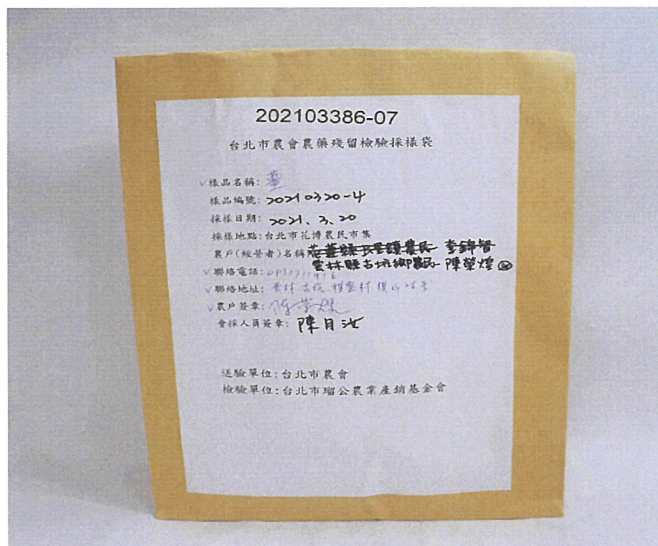 202103386-07
台北市農會農藥殘留檢驗採樣袋
✓樣品名稱: 薑
樣品編號: 20210320-4
採樣日期: 2021. 3. 20
採樣地點: 台北市花博農民市集
農戶(經營者)名稱
雲林縣古坑鄉農民 陳榮煌
✓聯絡電話:
✓聯絡地址: 雲林古坑
✓農戶簽章: 陳榮煌
會採人員簽章: 陳月汝
送驗單位: 台北市農會
檢驗單位: 台北市瑠公農業產銷基金會